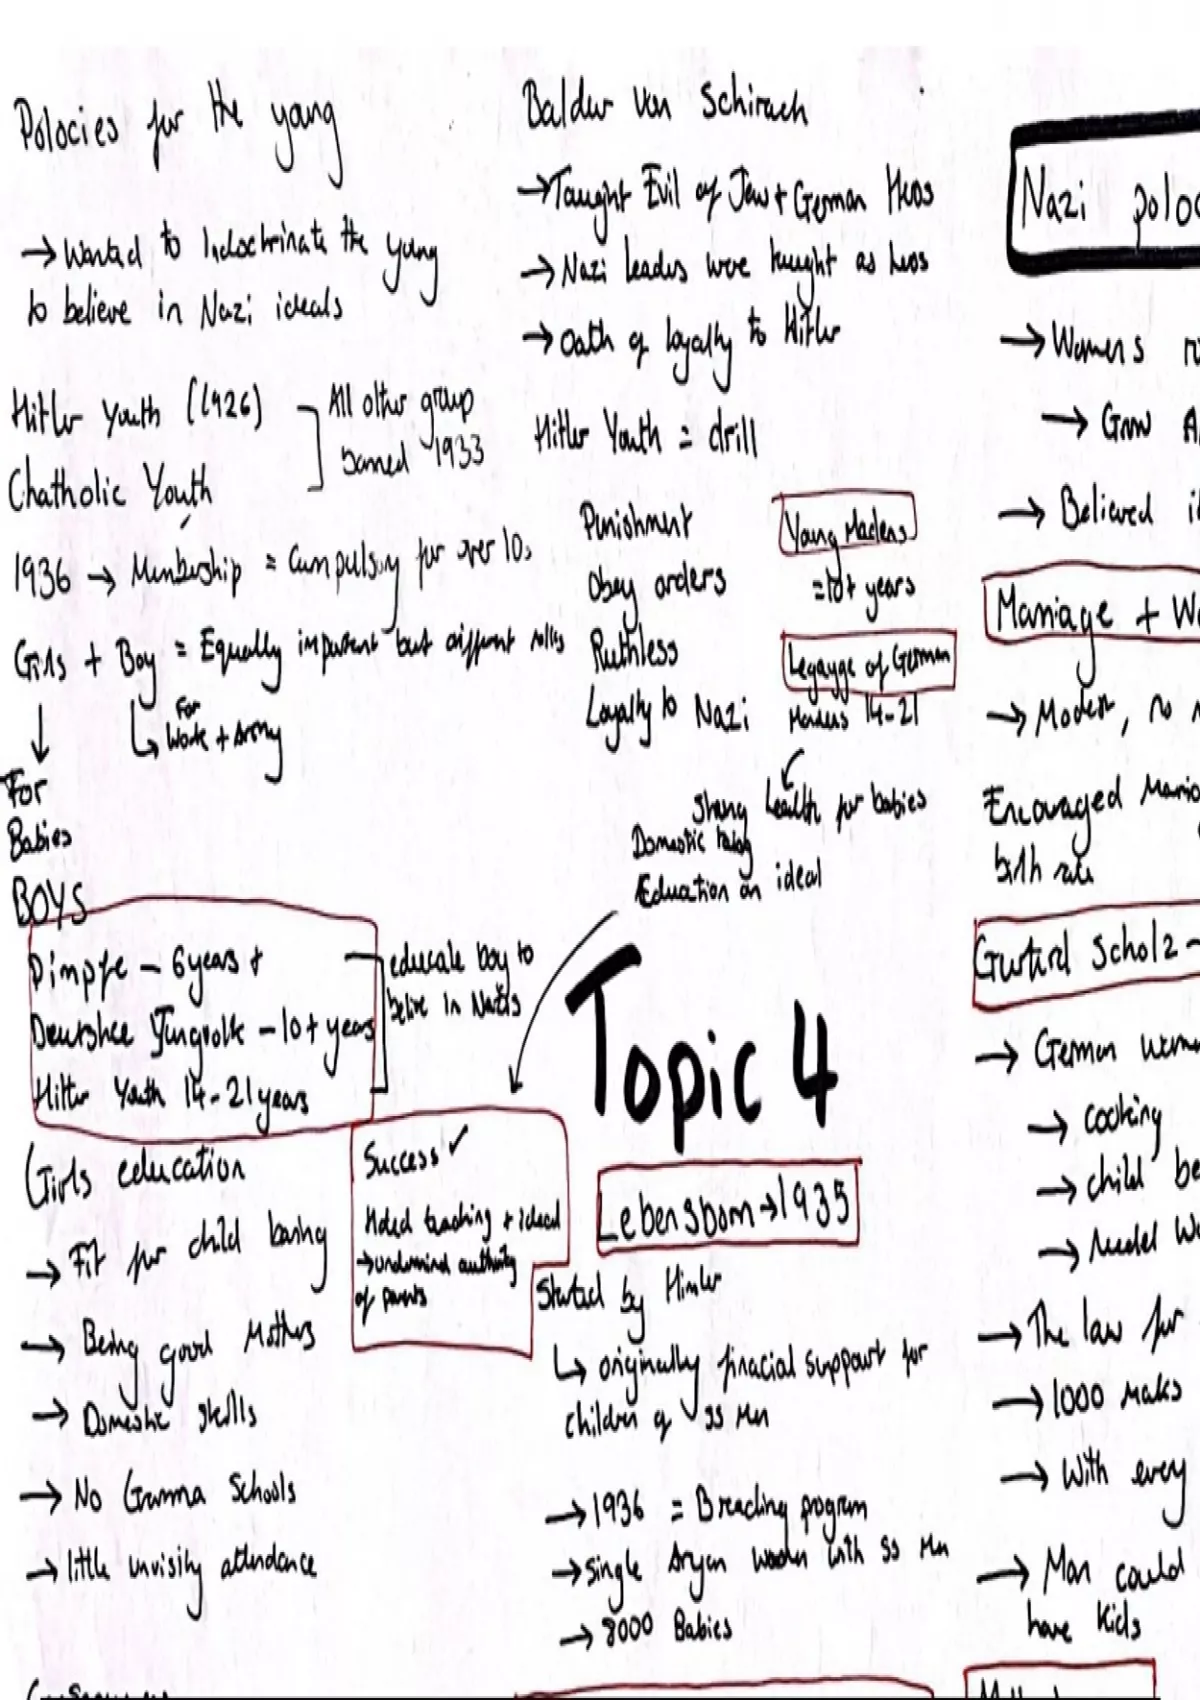 Polocies for the young
→ Wanted to Indoctrinate the young
to believe in Nazi ideals
Hitler Youth (1926)
Chatholic Youth
All other group
banned 1933
1936 → Membership = Compulsory for over 10s
Girls + Boy = Equally important but different rolls
↓
For
Babies
For
↳ Work + Army
BOYS
Pimpfe – 6 years +
Deutshee Jungvolk – 10+ years
Hitler Youth 14-21 years
educate boy to
belive in Nazis
Girls education
→ Fit for child baring
→ Being good Mothers
→ Domestic skills
→ No Gramma Schools
→ little univisity attendance
Success ✓
Hated teaching + ideal
→ undermind authority
of parents
Baldur Von Schirach
→ Taught Evil of Jew + German Heos
→ Nazi leaders were taught as heos
→ Oath of loyalty to Hitler
Hitler Youth = drill
Punishment
Obey orders
Ruthless
Loyalty to Nazi
Young Madens
=10+ years
of German
Madens 14-21
Strong health for babies
Domestic
Education on ideal
Topic 4
Lebensborn → 1935
Started by Himler
↳ originally finacial support for
children of SS Men
→ 1936 = Breeding program
→ Single Aryan women with SS Men
→ 8000 Babies
Nazi poloc
→ Womens
→ Grow A
→ Believed i
Marriage + Wo
→ Modest, no
Encouraged Marria
birth rate
Scholz –
→ German wom
→ cooking
→ child be
→ Model Wo
→ The law for
→ 1000 Maks
→ With every
→ Man could
have kids